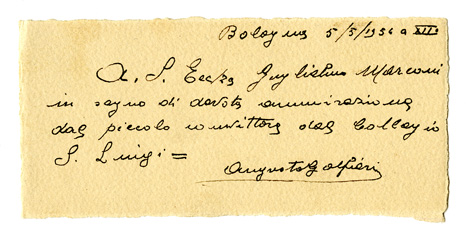 Bologna 5/5/1934 a XII
A. S. Ecc/za Guglielmo Marconi
in segno di devota ammirazione
dal piccolo convittore del Collegio
S. Luigi =
Augusto Golfieri